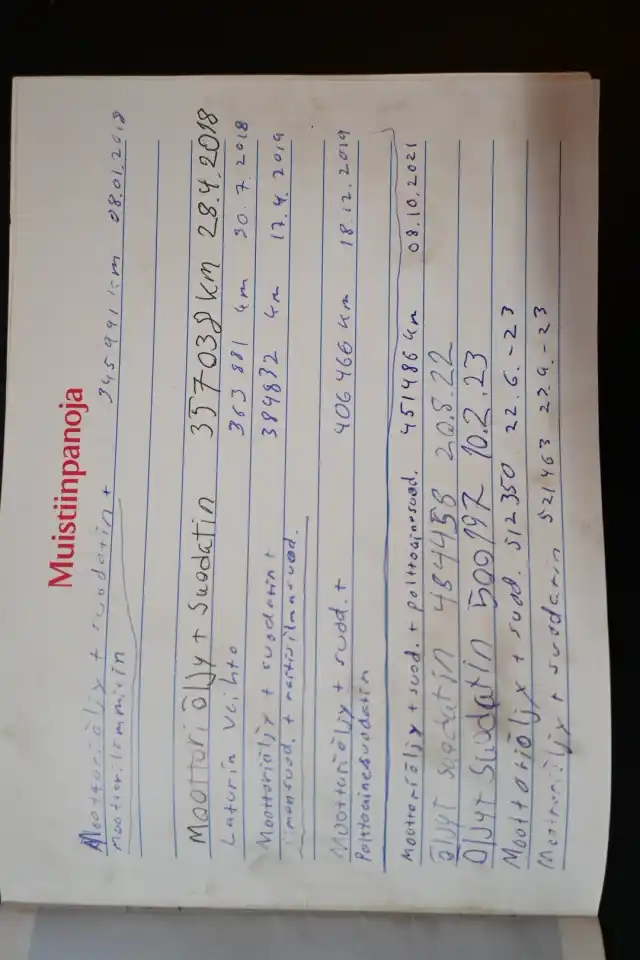 Muistiinpanoja
Moottoriöljy + suodatin + 345991 km 08.01.2018
moottorilämmitin
Moottori öljy + Suodatin 357038 KM 28.4.2018
Laturin vaihto 363881 km 30.7.2018
Moottoriöljy + suodatin + 384832 km 17.4.2019
ilmansuod. + raitisilmasuod.
Moottoriöljy + suod. + 406466 km 18.12.2019
Polttoainesuodatin
Moottoriöljy + suod. + polttoainesuod. 451486 km 08.10.2021
öljyt suodatin 484456 20.8.22
Öljyt Suodatin 500197 10.2.23
Moottoriöljy + suod. 512350 22.6.-23
Moottoriöljy + suodatin 521463 27.9.-23